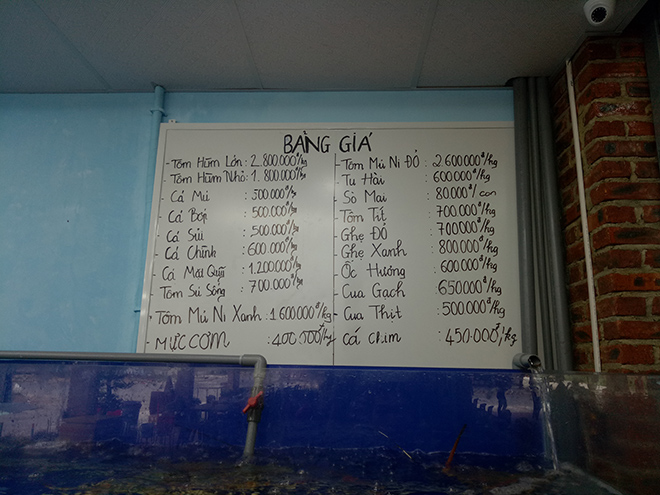 BẢNG GIÁ
- Tôm Hùm Lớn : 2.800.000đ/kg
- Tôm Hùm Nhỏ : 1.800.000đ/kg
- Cá Mú : 500.000đ/kg
- Cá Bóp : 500.000đ/kg
- Cá Sủi : 500.000đ/kg
- Cá Chình : 600.000đ/kg
- Cá Mặt Quỷ : 1.200.000đ/kg
- Tôm Sú Sống : 700.000đ/kg
- Tôm Mú Ni Xanh : 1600000đ/kg
- MỰC CƠM : 400.000đ/kg
- Tôm Mú Ni Đỏ : 2600000đ/kg
- Tu Hài : 600000đ/kg
- Sò Mai : 80000đ/con
- Tôm Tít : 700.000đ/kg
- Ghẹ Đỏ : 700000đ/kg
- Ghẹ Xanh : 800000đ/kg
- Ốc Hương : 600000đ/kg
- Cua Gạch : 650000đ/kg
- Cua Thịt : 500000đ/kg
- Cá Chim : 450.000đ/kg